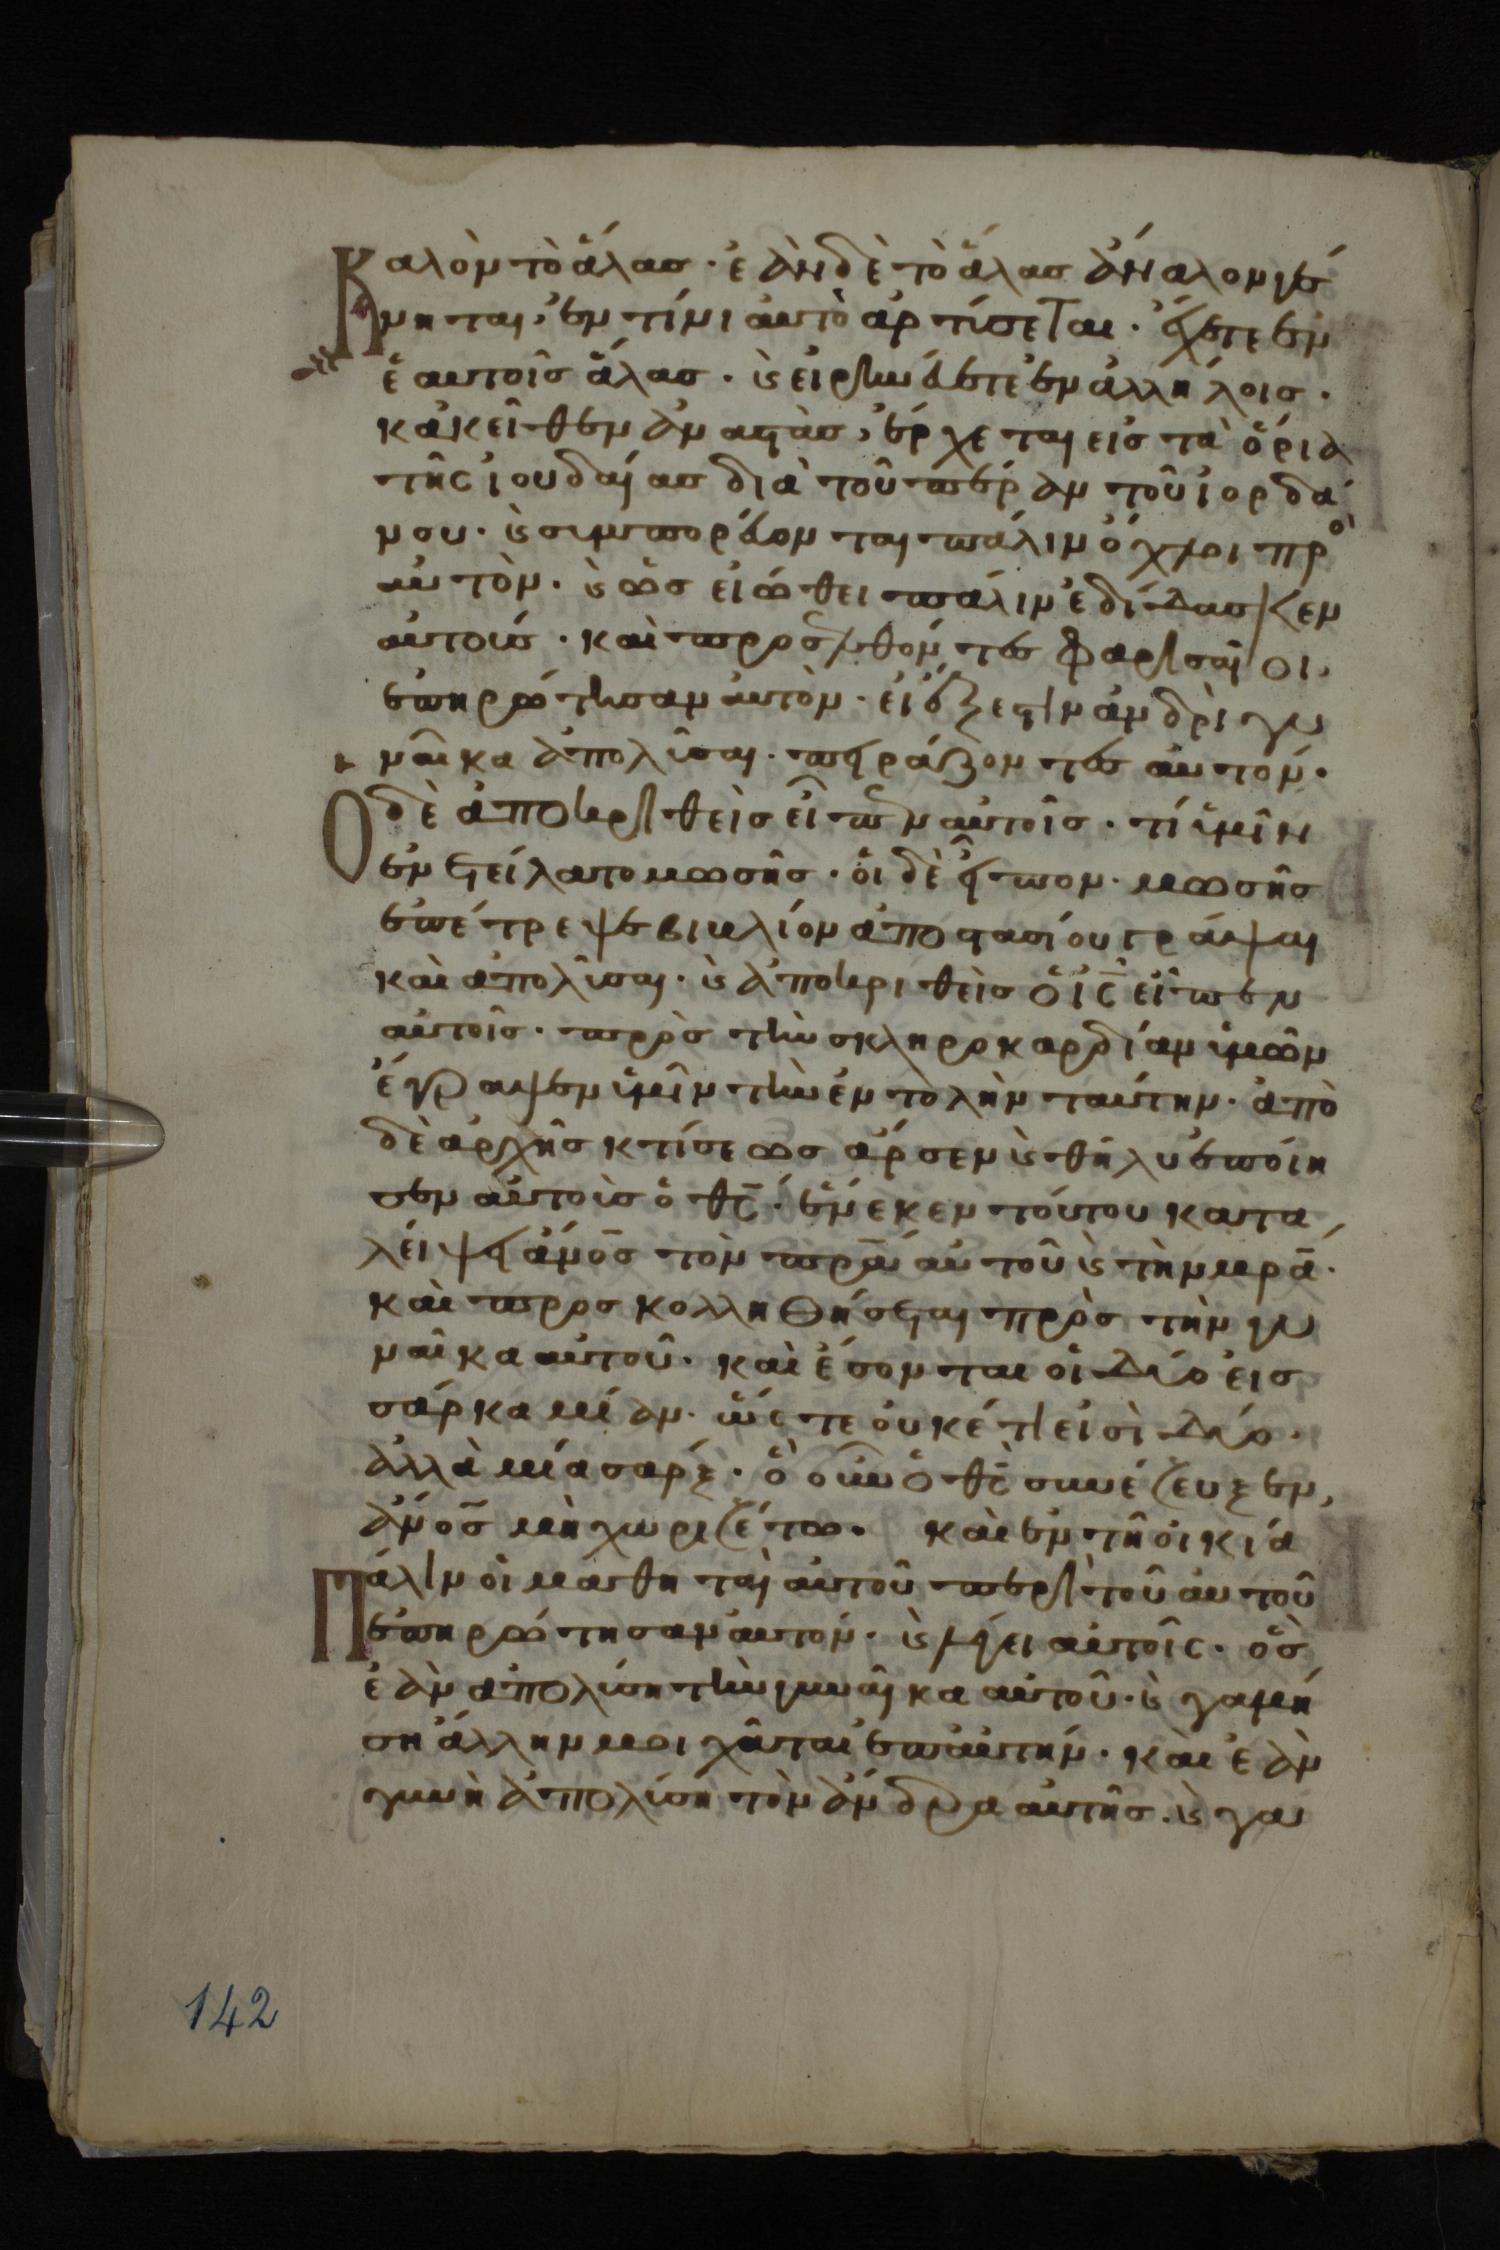 Καλὸν τὸ ἅλας· ἐὰν δὲ τὸ ἅλας ἄναλον γέ
νηται, ἐν τίνι αὐτὸ ἀρτίσεται· ἔχετε ἐν
ἑαυτοῖς ἅλας· κ̀ εἰρηνεύετε ἐν ἀλλήλοις·
κἀκεῖθεν ἀναστὰς, ἔρχεται εἰς τὰ ὅρια
τῆς ἰουδαίας διὰ τοῦ πέραν τοῦ ἰορδά
νου· κ̀ συμπορεύονται πάλιν ὄχλοι πρὸ
αὐτὸν· κ̀ ὡς εἰώθει πάλιν ἐδίδασκεν
αὐτούς· καὶ προσελθόντες φαρισαῖοι,
ἐπηρώτησαν αὐτὸν· εἰ ἔξεστιν ἀνδρὶ γυ
ναῖκα ἀπολῦσαι· πειράζοντες αὐτόν·
Ὁ δὲ ἀποκριθεὶς εἶπεν αὐτοῖς· τί ὑμῖν
ἐνετείλατο μωσῆς· οἱ δὲ εἶπον· μωσῆς
ἐπέτρεψε βιβλίον ἀποστασίου γράψαι
καὶ ἀπολῦσαι· κ̀ ἀποκριθεὶς ὁ ἰς̅ εἶπεν
αὐτοῖς· πρὸς τὴν σκληροκαρδίαν ὑμῶν
ἔγραψεν ὑμῖν τὴν ἐντολὴν ταύτην· ἀπὸ
δὲ ἀρχῆς κτίσεως ἄρσεν κ̀ θῆλυ ἐποίη
σεν αὐτοὺς ὁ θς̅· ἕνεκεν τούτου κατα
λείψει ἄνος̅ τὸν πρα̅ αὐτοῦ κ̀ τὴν μρα̅·
καὶ προσκολληθήσεται πρὸς τὴν γυ
ναῖκα αὐτοῦ· καὶ ἔσονται οἱ δύο εἰς
σάρκα μίαν· ὥστε οὐκέτι εἰσὶ δύο·
ἀλλὰ μία σάρξ· ὃ οὖν ὁ θς̅ συνέζευξεν,
ἄνος̅ μὴ χωριζέτω· καὶ ἐν τῇ οἰκία
Πάλιν οἱ μαθηταὶ αὐτοῦ περὶ τοῦ αὐτοῦ
ἐπηρώτησαν αὐτόν· κ̀ λέγει αὐτοῖς· ὃς
ἐὰν ἀπολύση τὴν γυναῖκα αὐτοῦ· κ̀ γαμή
ση ἄλλην μοιχᾶται ἐπ' αὐτήν· καὶ ἐὰν
γυνὴ ἀπολύση τὸν ἄνδρα αὐτῆς· κ̀ γαμ
142